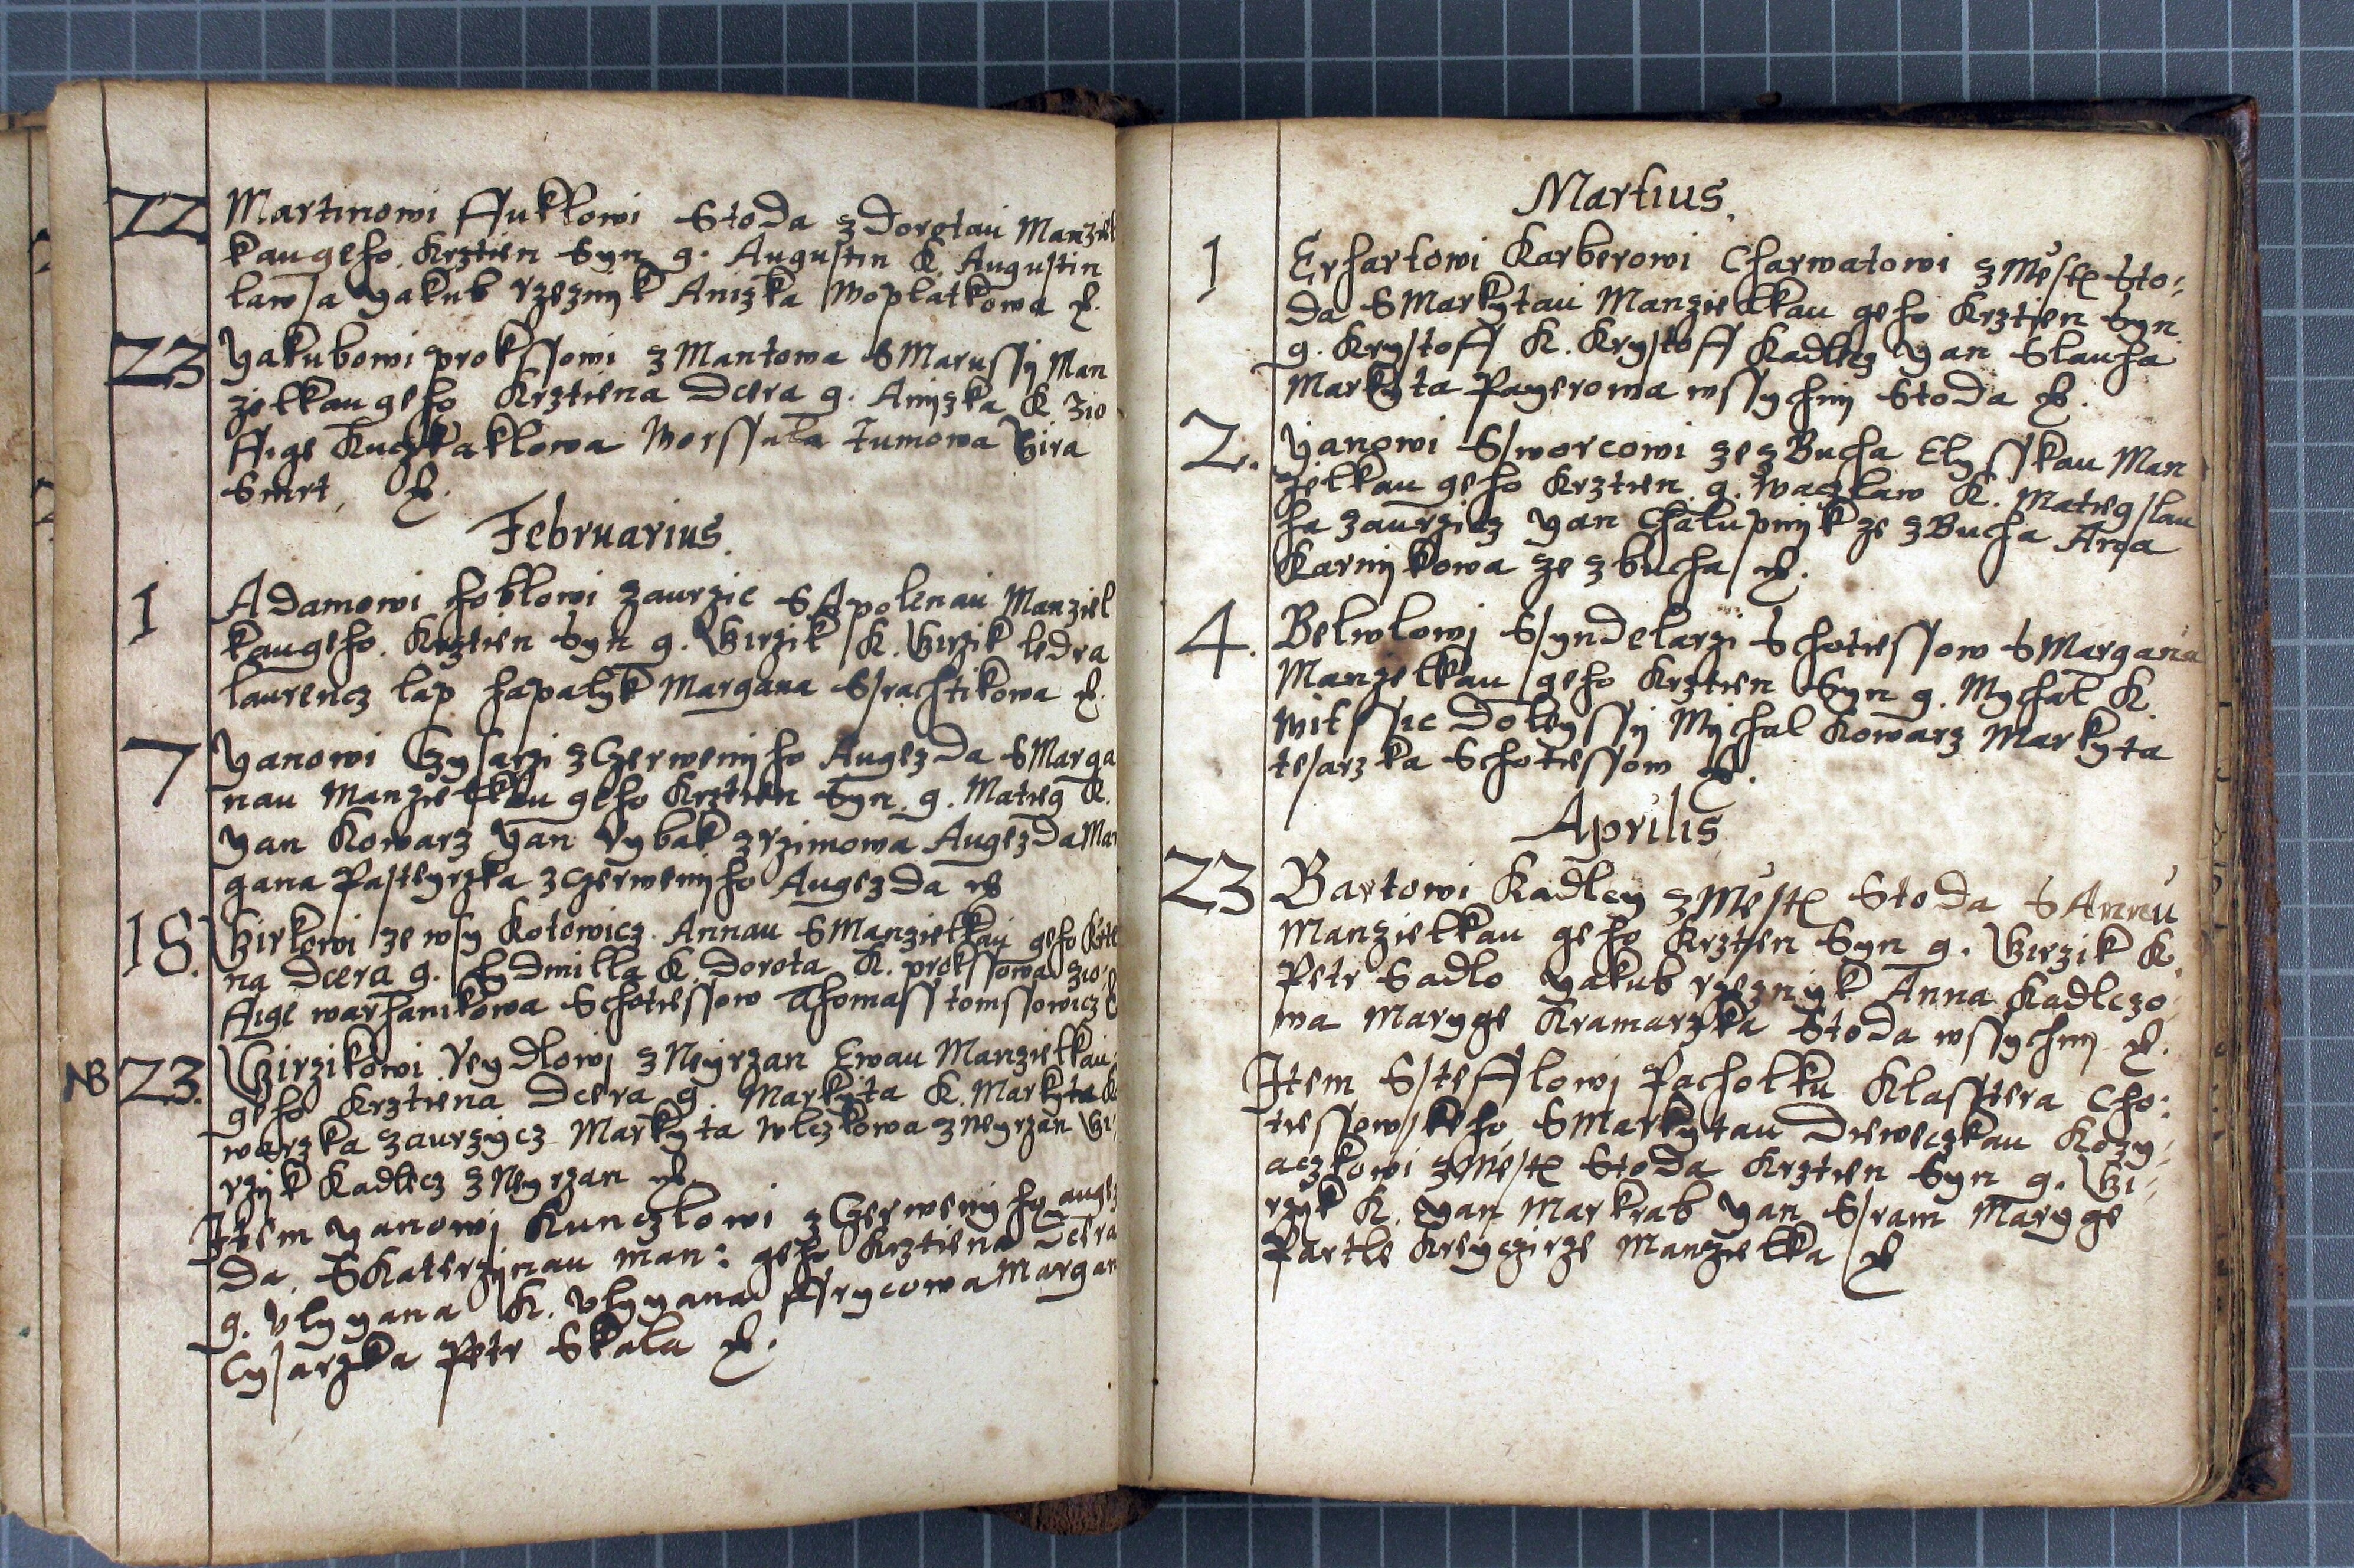 22 Martinowi Ffuklowi Stoda z Dorotau Manziel
kau geho. Krztien Syn g. Augustin K. Augustin
lawsa Yakub rzeznyk Anizka Woplatkowa
23 Yakubowi prokssowi z Mantowa S Marussy Man
zelkau geho Krztiena Dcera g. Anyzka K. Zio
ffige Kuchaklowa Worssula Tumowa Girza
Smrt
Februarius.
1 Adamowi hoblowi zaurzic S Apolenau Manziel
kau geho. Krztien Syn g. Girzik K. Girzik ledra
laurencz lap hapalyk Margana Srachtikowa
7 Yanowi Czysarzi z Czerwenyho Augezda S Marga
nau Manzielkau geho Krztien Syn. g. Matieg K.
Yan Kowarz Yan Rybak z rzimowa Augezda Mar
gana Pasteyrzka z czerwenyho Augezda
18. Girkowi ze wsy Kotowicz. Annau S Manzielkau geho Krztie
na Dcera g. Ludmilla K. Dorota K. prokssowa zio
ffige warhanikowa S chotiessow Thomass tomssowicz
NB 23. Girzikowi Reydlowi z Neyrzan Ewau Manzielkau
geho Krztiena Dcera g. Markyta K. Markyta Ko
warzka zaurzycz Markyta Wlczkowa z neyrzan Gi
rzyk Kadlecz z Neyrzan
Item Yanowi Kunczlowi z Czerwenyho auge
da S Katerzinau man: geho Krztiena Dcera
g. Ulyyana K. Ulyyana Ffrycowa Margan
Cysarzka Petr Skala
Martius.
1 Erhartowi Karberowi Charwatowi z Mest Sto:
da S Markytau Manzielkau geho Krztien Syn
g. Krystoff K. Krystoff Kadlecz Yan Slauha
Markyta Payerowa wssychny Stoda
2. Yanowi Sworcowi ze zBucha Elysskau Man
zelkau geho Krztien g. Waczlaw K. Matieg slau
ha zaurzicz Yan Chalupnyk ze zBucha Anna
Karnykowa ze zbucha
4. Belwlowi Syndelarzi S chotiessow S Margana
Manzelkau geho Krztien Syn g. Mychal K.
Mikssic Doleyssy Mychal Kowarz Markyta
tesarzka S chotiessow
Aprilis
23 Bartowi Kadlczy z Mest Stoda S Annau
Manzielkau geho Krztien Syn g. Girzik K.
Petr Sadlo Yakub rzeznyk Anna Kadlczo
wa Maryge Kramarzka Stoda wssychny
Item Stefflowi Pacholku Klasstera Cho:
tiessowskeho S Markytau Dieweczkau Kozy-
aczkowi z Mest Stoda Krztien Syn g. Gi-
rzyk K. Yan Markrab Yan Sram Maryge
Partle Kreyczirze Manzielka